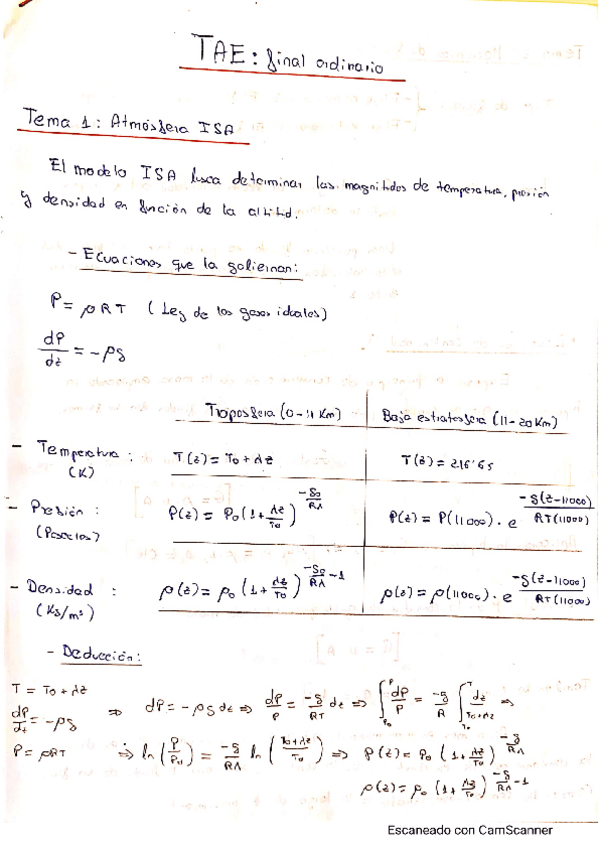 TAE: final ordinario
Tema 1: Atmósfera ISA
El modelo ISA busca determinar las magnitudes de temperatura, presión
y densidad en función de la altitud.
- Ecuaciones que la gobiernan:
P = ρRT (Ley de los gases ideales)
dP/dz = -ρg
Troposfera (0-11 Km) Baja estratosfera (11-20 Km)
- Temperatura : (K) T(z) = T0 + λz T(z) = 216'65
- Presión : (Pascales) P(z) = P0 (1 + λz/T0)^(-g0/Rλ) P(z) = P(11000) · e^(-g(z-11000)/RT(11000))
- Densidad : (Kg/m³) ρ(z) = ρ0 (1 + λz/T0)^(-g0/Rλ - 1) ρ(z) = ρ(11000) · e^(-g(z-11000)/RT(11000))
- Deducción:
T = T0 + λz
dP/dz = -ρg ⇒ dP = -ρg dz ⇒ dP/P = -g/RT dz ⇒ ∫ dP/P = -g/R ∫ dz/T0+λz ⇒
P = ρRT ⇒ ln(P/P0) = -g/Rλ ln(T0+λz/T0) ⇒ P(z) = P0 (1 + λz/T0)^(-g/Rλ)
ρ(z) = ρ0 (1 + λz/T0)^(-g/Rλ - 1)
Escaneado con CamScanner